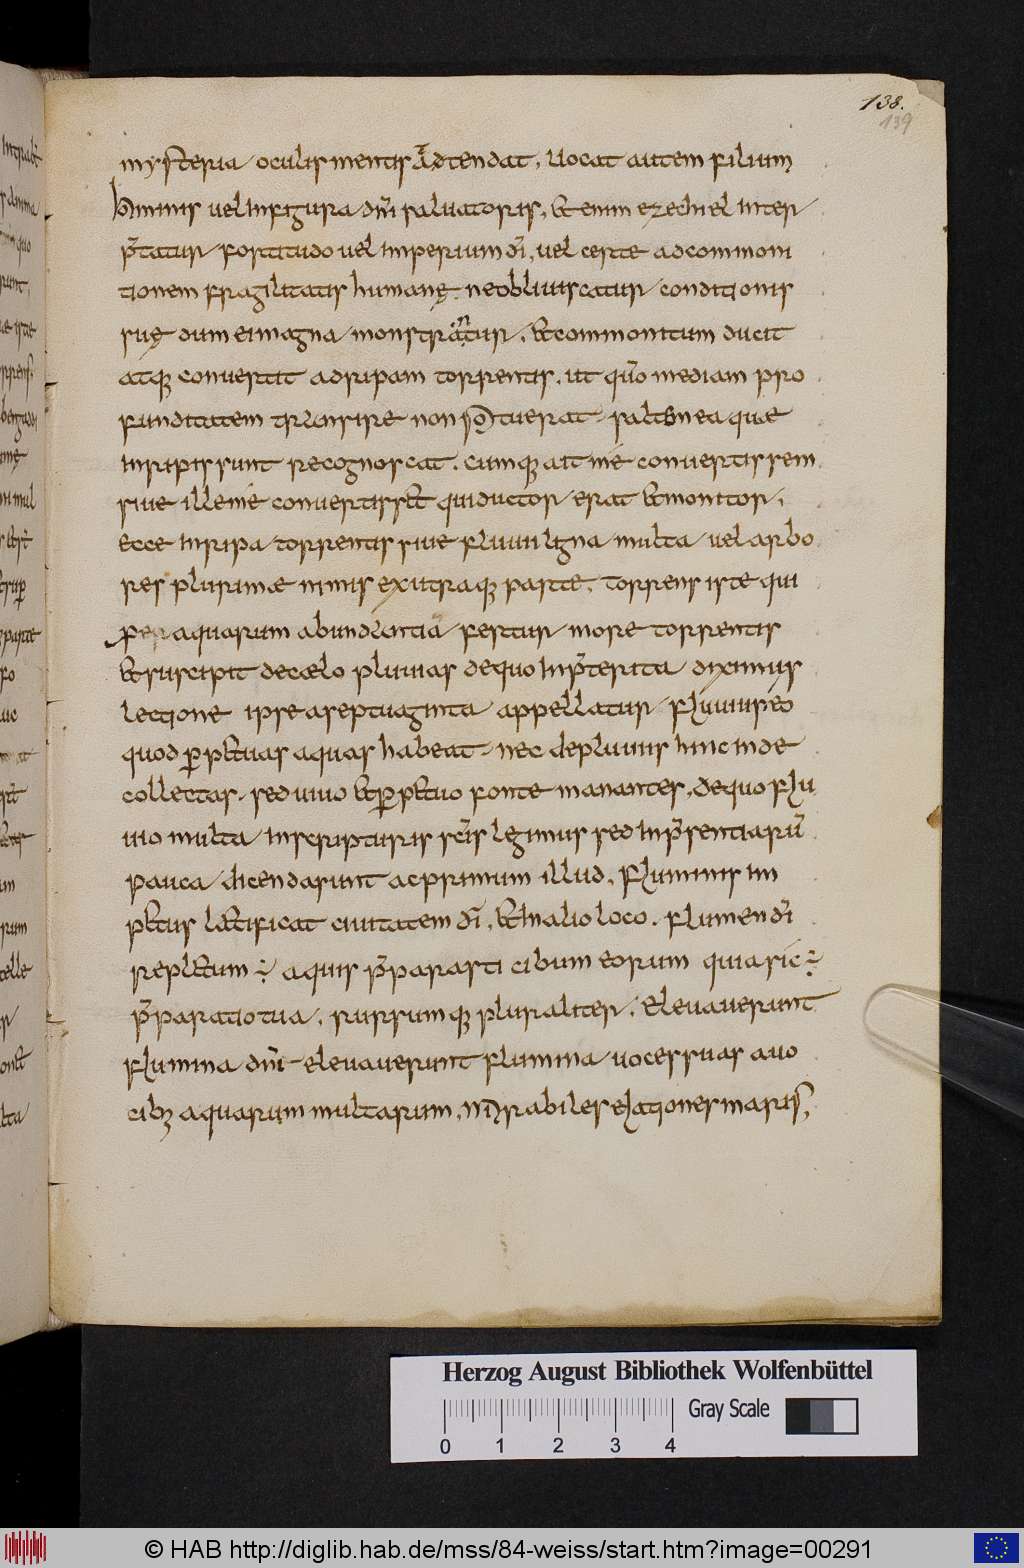 138.
139
mysteria oculis mentis adtendat, uocat autem filium
hominis uel in figura dñi saluatoris, & enim ezechiel inter
p̄tatur fortitudo uel imperium dī, uel certe ad commoni
tionem fragilitatis humanę ne obliuiscatur conditionis
suę dum ei magna monstrantur, & commonitum ducit
atq; conuertit ad ripam torrentis, ut quō mediam pro
funditatem transire non potuerat saltim ea quae
in ripis sunt recognoscat. cumq; ait me conuertissem
siue ille me conuertiss& qui ductor erat & monitor,
ecce in ripa torrentis siue fluuii ligna multa uel arbo
res plurimae nimis ex utraq; parte, torrens iste qui
per aquarum abundantia fertur more torrentis
& suscipit de caelo pluuias de quo in p̄terita diximus
lectione ipse a septuaginta appellatur fluuius eo
quod perp&uas aquas habeat nec de pluuiis hinc inde
collectas, sed uiuo & perp&uo fonte manantes, de quo flu
uio multa in scripturis sc̄is legimus sed in p̄sentiarū
pauca dicenda sunt ac primum illud, fluminis im
p&us l&ificat ciuitatem dī, & in alio loco. flumen dī
repl&um ÷ aquis p̄parasti cibum eorum quia sic ÷
p̄paratio tua, rursumq; pluraliter, eleuauerunt
flumina dñe eleuauerunt flumina uoces suas a uo
cib; aquarum multarum, mirabiles elationes maris,
Herzog August Bibliothek Wolfenbüttel
Gray Scale
0 1 2 3 4
© HAB http://diglib.hab.de/mss/84-weiss/start.htm?image=00291